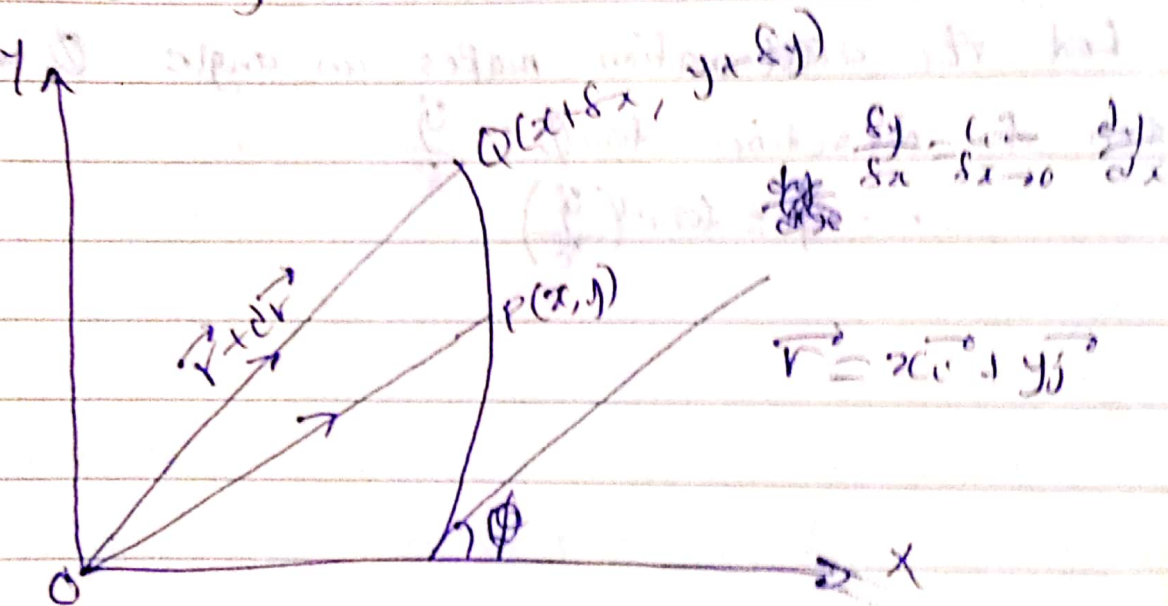 Y
Q(x+δx, y+δy)
δy/δx = Lt δx→0 dy/dx
r⃗+dr⃗
P(x,y)
r⃗ = xi⃗ + yj⃗
ψ
O
X